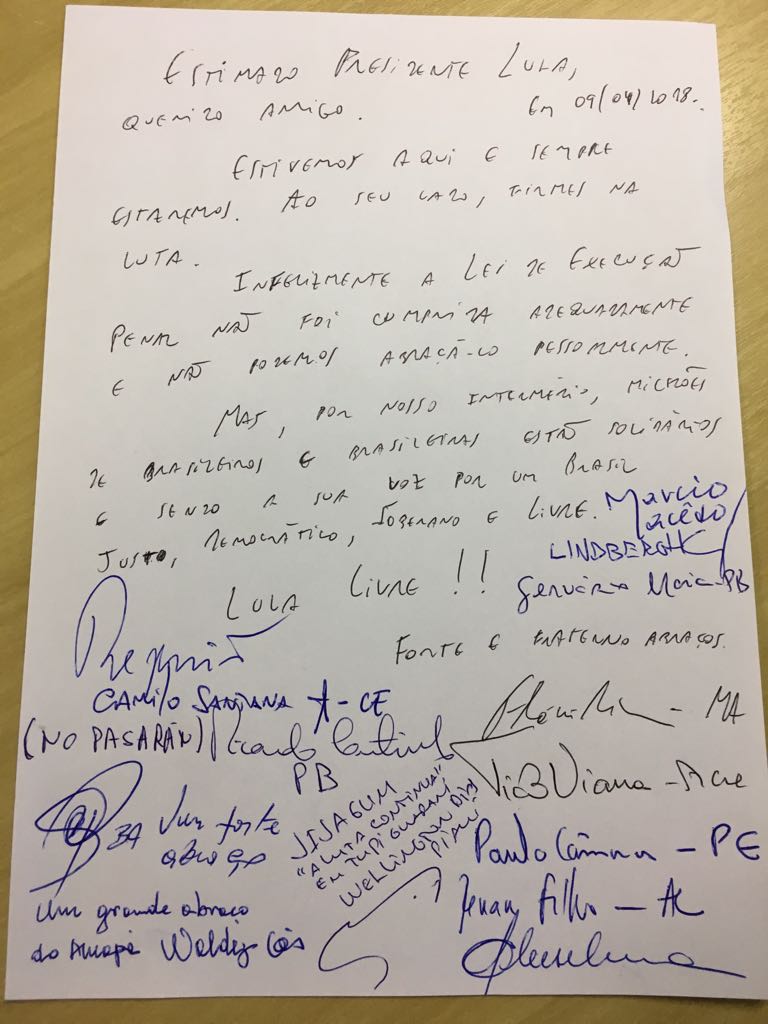 ESTIMADO PRESIDENTE LULA,
QUERIDO AMIGO. Em 09/04/2018.
ESTIVEMOS AQUI E SEMPRE
ESTAREMOS. AO SEU LADO, FIRMES NA
LUTA.
INFELIZMENTE A LEI DE EXECUÇÃO
PENAL NÃO FOI CUMPRIDA ADEQUADAMENTE
E NÃO PODEMOS ABRAÇÁ-LO PESSOALMENTE.
MAS, POR NOSSO INTERMÉDIO, MILHÕES
DE BRASILEIROS E BRASILEIRAS ESTÃO SOLIDÁRIOS
E SENDO A SUA VOZ POR UM BRASIL
JUSTO, DEMOCRÁTICO, SOBERANO E LIVRE.
Marcio
Macêdo
LINDBERGH
LULA LIVRE !!
Gervásio Maia-PB
FORTE E FRATERNO ABRAÇOS.
Requião
CAMILO SANTANA - CE
(NO PASARÁN) Ricardo Coutinho
PB
- MA
Tião Viana - Acre
BA Um forte
abraço
JIJAGUM
"A LUTA CONTINUA"
EM TUPI GUARANI
WELLINGTON DIAS
PIAUÍ
Paulo Câmara - PE
Renan Filho - AL
Um grande abraço
do Amapá Waldez Góes